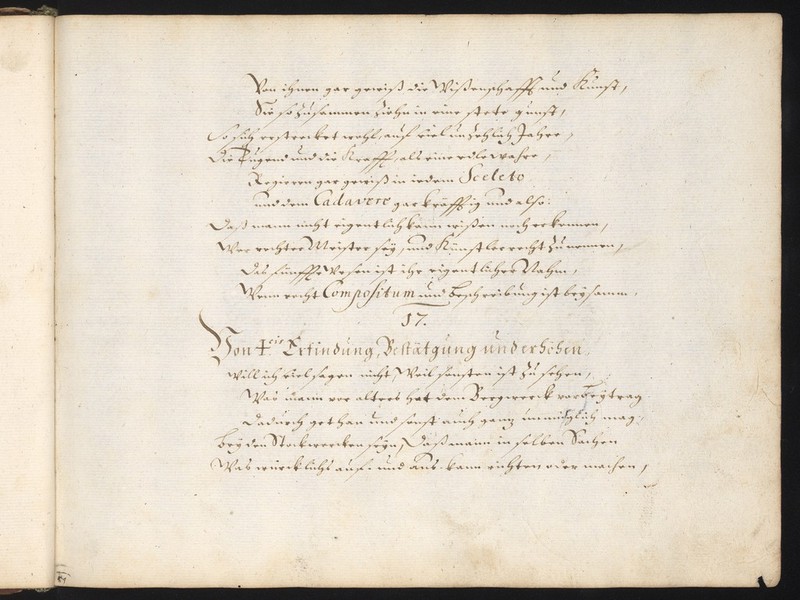 Von ihnen gar gewiß die Wißenschafft und Kunst,
Sie so zusammen ziehn in eine stete gunst,
So sich erstrecket wohl, auf viel unzehlich Jahre,
Die Tugend und die Krafft, als eine edle wahre,
Regieren gar gewiß in iedem Sceleto
und dem Cadavere gar kräfftig und also:
Daß mann nicht eigentlich kann wißen noch erkennen,
Wer rechter Meister sey, und Künstler recht zu nennen,
Das fünffte Wesen ist ihr eigentlicher Nahm,
Wenn recht Compositum und beschreibung ist beysamm.
17.
Von Erfindung, Bestätgung und erhöhen
Will ich viel sagen nicht, Weil sonsten ist zu sehen,
Was mann vor alters hat dem Bergwerck vor beytrag
Dadurch gethan und sonst auch ganz unmöglich mag
bey den Stockwercken seyn, Daß mann in selben Sachen
Was würcklichs auf- und aus- kann richten oder machen,